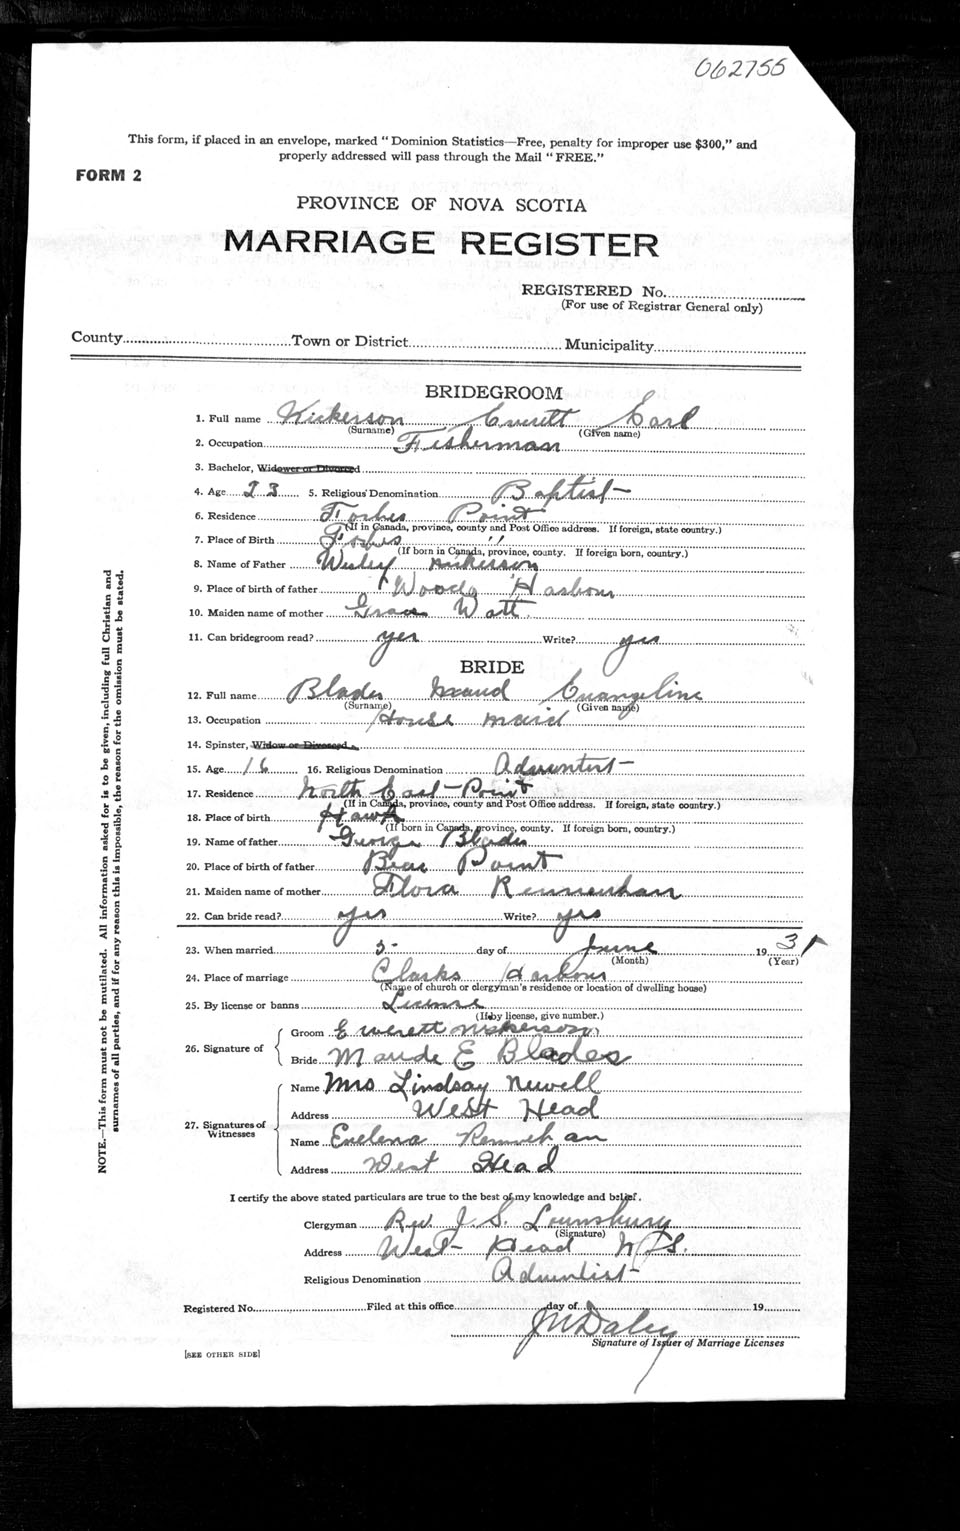 062755
This form, if placed in an envelope, marked "Dominion Statistics—Free, penalty for improper use $300," and
properly addressed will pass through the Mail "FREE."
FORM 2
PROVINCE OF NOVA SCOTIA
MARRIAGE REGISTER
REGISTERED No.
(For use of Registrar General only)
County Town or District Municipality
BRIDEGROOM
1. Full name Nickerson Everett Carl
(Surname) (Given name)
2. Occupation Fisherman
3. Bachelor, Widower or Divorced
4. Age 23 5. Religious Denomination Baptist
6. Residence Forbes Point
(If in Canada, province, county and Post Office address. If foreign, state country.)
7. Place of Birth Forbes "
(If born in Canada, province, county. If foreign born, country.)
8. Name of Father Wesley Nickerson
9. Place of birth of father Woods Harbour
10. Maiden name of mother Grace Watt
11. Can bridegroom read? yes Write? yes
BRIDE
12. Full name Blades Maud Evangeline
(Surname) (Given name)
13. Occupation House maid
14. Spinster, Widow or Divorced
15. Age 16 16. Religious Denomination Adventist
17. Residence North East Point
(If in Canada, province, county and Post Office address. If foreign, state country.)
18. Place of birth Hawk
(If born in Canada, province, county. If foreign born, country.)
19. Name of father George Blades
20. Place of birth of father Bear Point
21. Maiden name of mother Flora
22. Can bride read? yes Write? yes
23. When married 5 day of June 1931
(Month) (Year)
24. Place of marriage Clarks Harbour
(Name of church or clergyman's residence or location of dwelling house)
25. By license or banns License
(If by license, give number.)
26. Signature of Groom Everett Nickerson
Bride Maude E Blades
27. Signatures of Witnesses Name Mrs Lindsay Newell
Address West Head
Name Evelena
Address West Head
I certify the above stated particulars are true to the best of my knowledge and belief.
Clergyman Rev J. S. Lounsbury
(Signature)
Address West Head N.S.
Religious Denomination Adventist
Registered No. Filed at this office day of 19
J M Daley
Signature of Issuer of Marriage Licenses
[SEE OTHER SIDE]
NOTE.—This form must not be mutilated. All information asked for is to be given, including full Christian and
surnames of all parties, and if for any reason this is impossible, the reason for the omission must be stated.